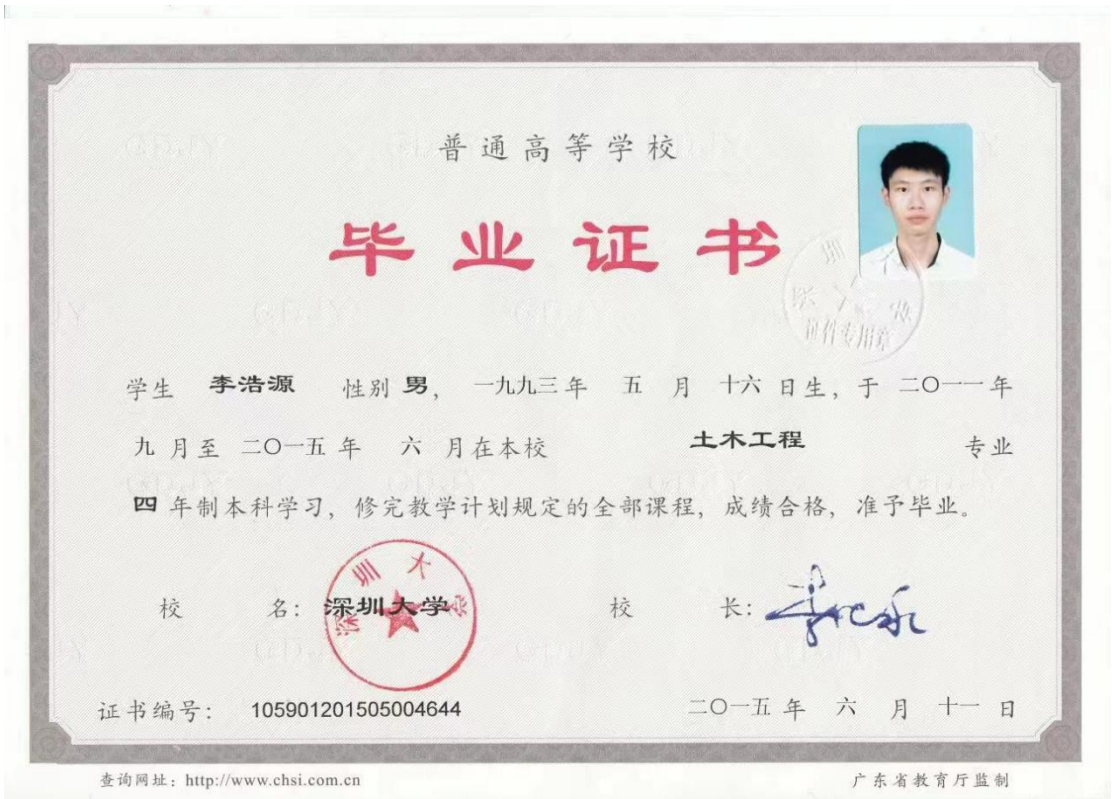 普通高等学校
毕业证书
学生 李浩源 性别 男， 一九九三 年 五 月 十六 日生，于 二〇一一 年
九 月至 二〇一五 年 六 月在本校 土木工程 专业
四 年制本科学习，修完教学计划规定的全部课程，成绩合格，准予毕业。
校 名：深圳大学 校 长：
深圳大学
证件专用章
证书编号： 105901201505004644 二〇一五 年 六 月 十一 日
查询网址：http://www.chsi.com.cn 广东省教育厅监制